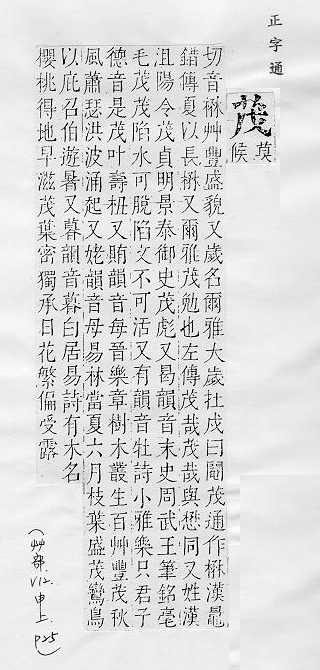 正字通
茂
莫候
切音楙艸豐盛貌又歲名爾雅大歲在戌曰閹茂通作楙漢鼂
錯傳夏以長楙又爾雅茂勉也左傳茂哉茂哉與懋同又姓漢
沮陽令茂貞明景泰御史茂彪又曷韻音末史周武王筆銘毫
毛茂茂陷水可脫陷文不可活又有韻音牡詩小雅樂只君子
德音是茂叶壽杻又賄韻音每晉樂章樹木叢生百艸豐茂秋
風蕭瑟洪波涌起又姥韻音母易林當夏六月枝葉盛茂鸞鳥
以庇召伯遊暑又暮韻音暮白居易詩有木名
櫻桃得地早滋茂葉密獨承日花繁偏受露
(艸部 V12. 申上 P25)